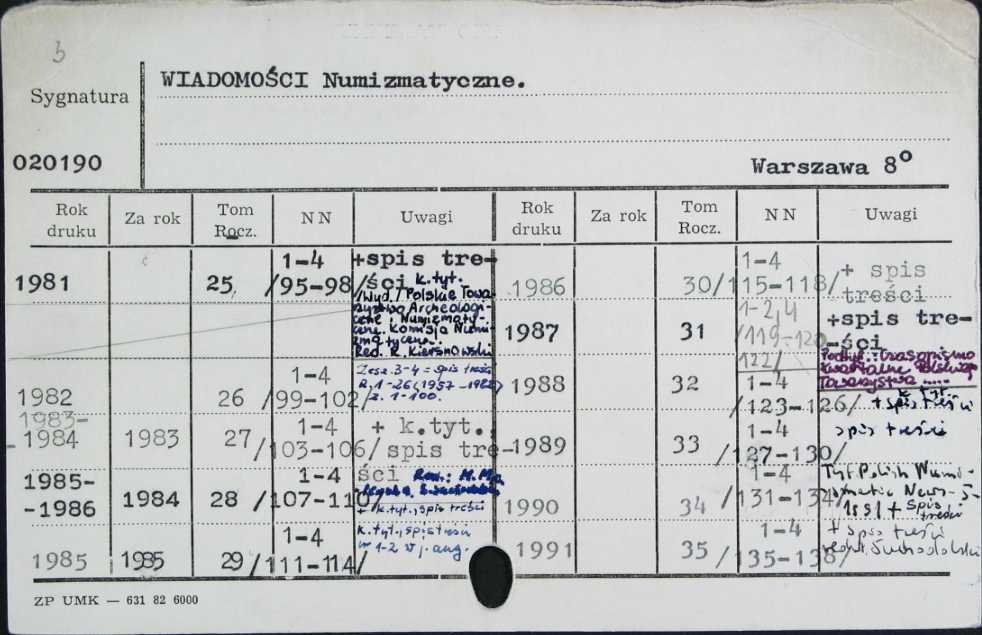 3
WIADOMOŚCI Numizmatyczne.
Sygnatura
020190
Warszawa 8º
Rok druku
Za rok
Tom Rocz.
NN
Uwagi
Rok druku
Za rok
Tom Rocz.
NN
Uwagi
1981 25 1-4 /95-98/ +spis tre-
ści k.tyt.
/Wyd./ Polskie Towa-
rzystwo Archeologi-
czne i Numizmaty-
czne. Komisja Numi-
zmatyczna.
Red. R. Kiersnowski
1982 26 1-4 /99-102/ Zesz. 3-4 = spis treści
R. 1-26 (1957-1982)
z. 1-100.
1983-
-1984 1983 27 1-4 /103-106/ + k.tyt.,
spis tre-
ści Red.: M. Mę
1985-
-1986 1984 28 1-4 /107-110/
+ k.tyt., spis treści
1985 1985 29 1-4 /111-114/ k.tyt., spis treści
w 1-2 w j. ang.
1986 30 1-4 /115-118/ + spis
treści
1987 31 1-2,4 /119-120
122/ +spis tre-
-ści
Podtyt.: Czasopismo
kwartalne Polskiego
Towarzystwa .....
1988 32 1-4 /123-126/ k. tyt.
+ spis treści
1989 33 1-4 /127-130/ spis treści
1990 34 1-4 /131-134/ Tyt. Polish Numi-
smatic News-5-
1991 + spis
treści
1991 35 1-4 /135-138/ + spis treści
redakt. Suchodolski
ZP UMK — 631 82 6000